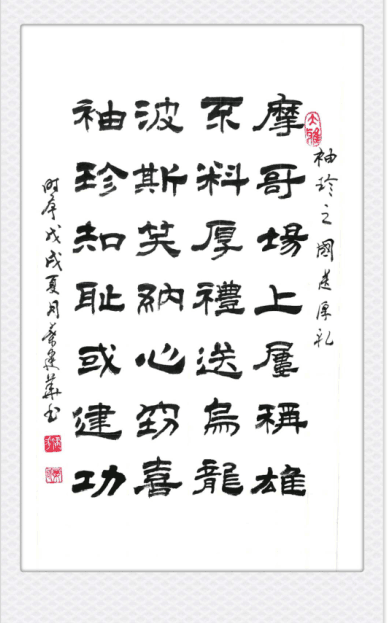 袖珍之國送厚礼
摩哥場上屢稱雄
不料厚禮送烏龍
波斯笑納心竊喜
袖珍知恥或建功
时序戊戌夏月